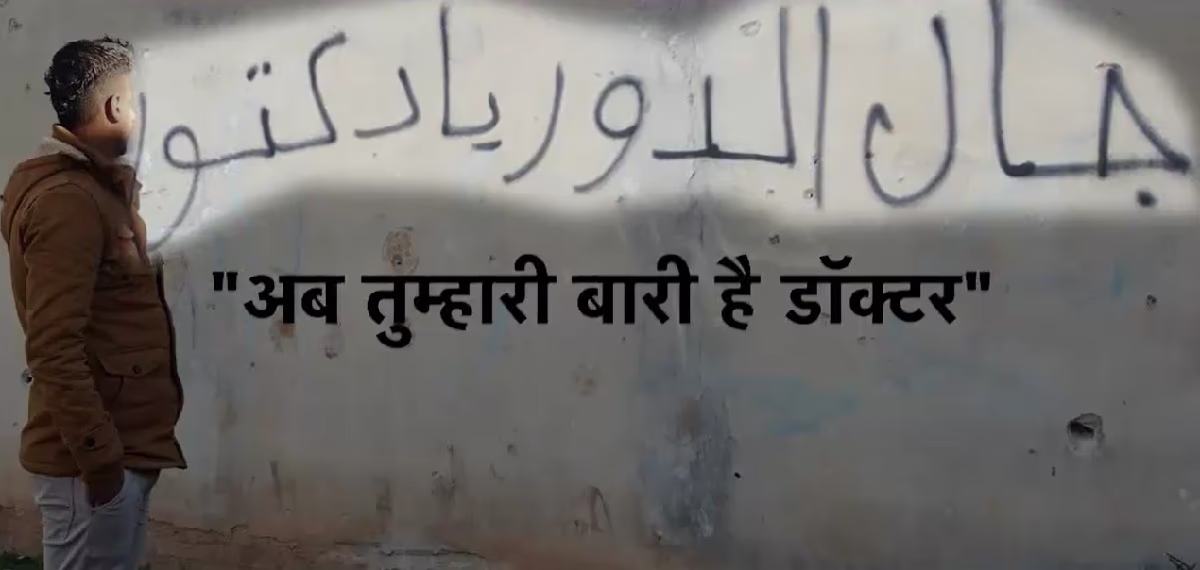 جال الدور يادكتور
"अब तुम्हारी बारी है डॉक्टर"